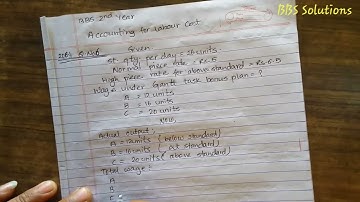 BBS Solutions
BBS 2nd Year
Accounting for Labour Cost
Given
St. qty. per day = 16 units
Normal piece rate = Rs. 5
High piece rate for above standard = Rs 6.5
Wage under Gantt task bonus plan = ?
A = 12 units
B = 16 units
C = 20 units
Now,
Actual output:
A = 12 units (below standard)
B = 16 units ( at standard)
C = 20 units (above standard)
Total wage:
A
B
C